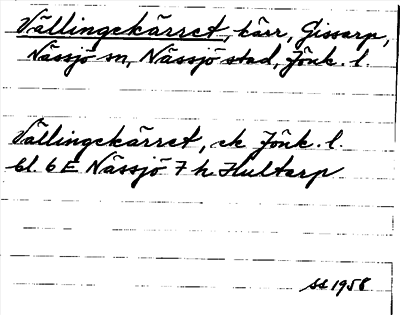 Vällingekärret, kärr, Gissarp,
Nässjö sn, Nässjö stad, Jönk. l.
Vällingekärret, ek Jönk. l.
bl. 6 E Nässjö 7 h Hultarp
SS 1958